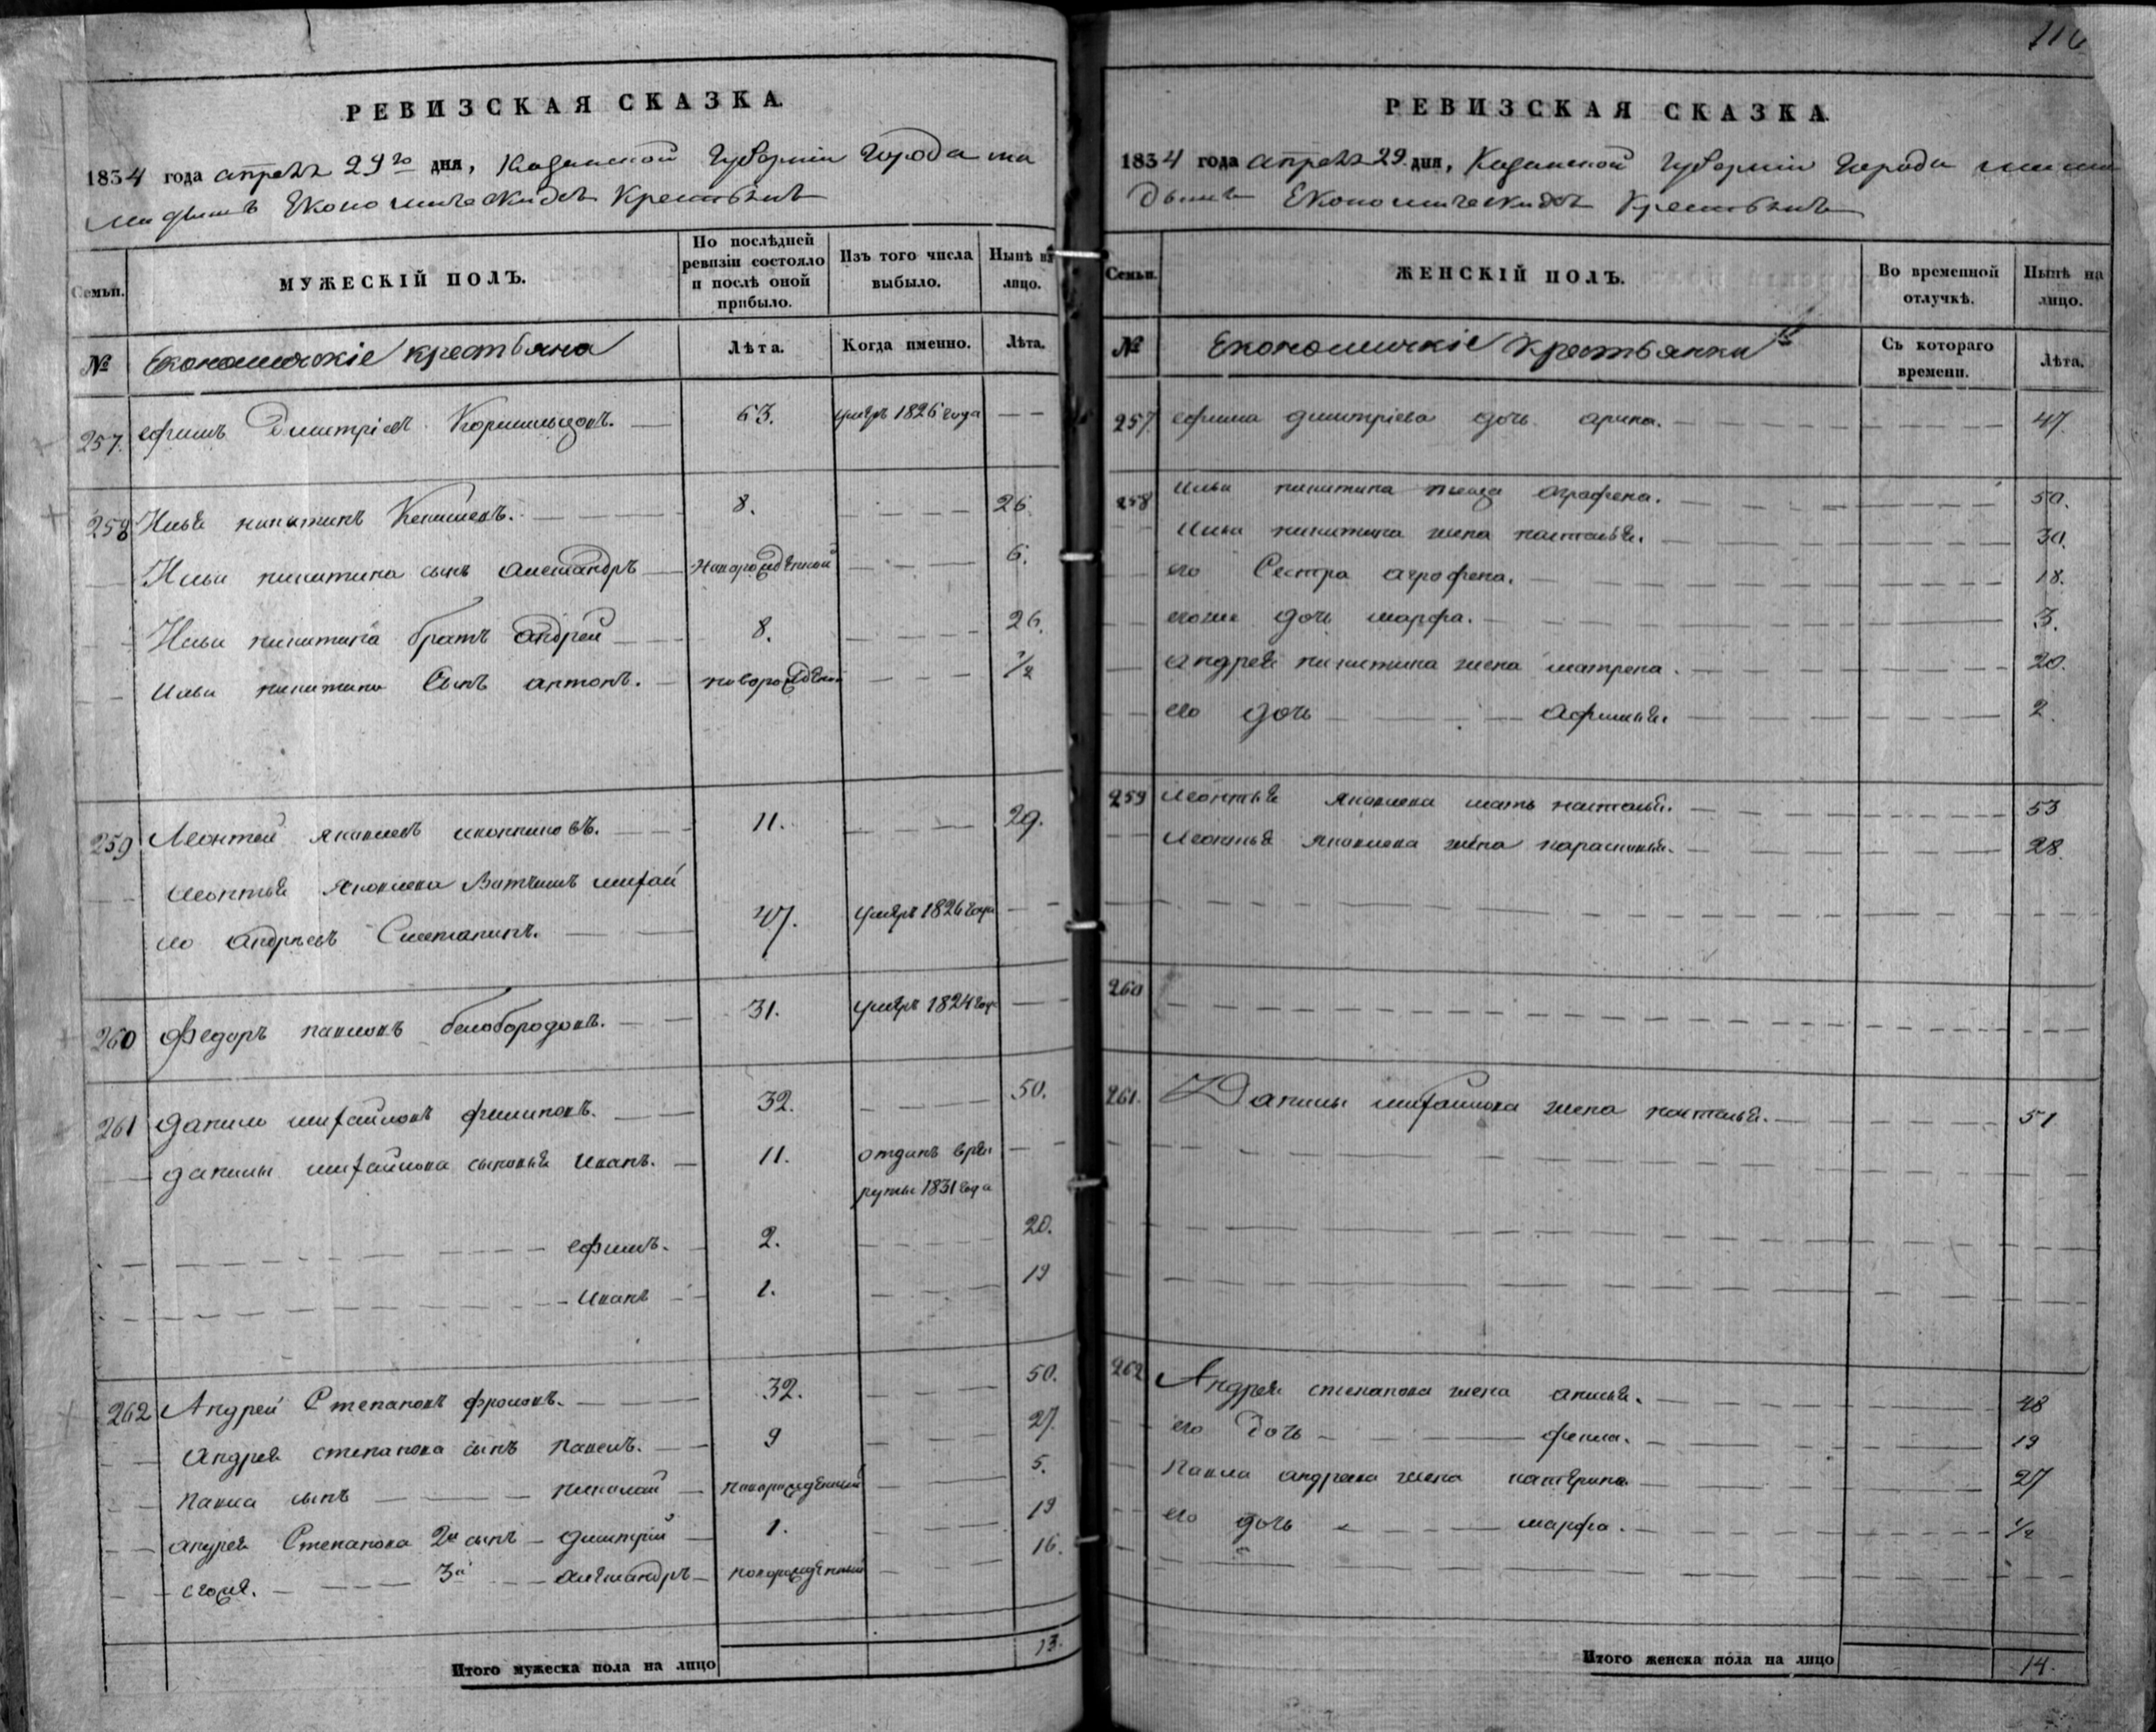 РЕВИЗСКАЯ СКАЗКА.
1834 года апреля 29го дня, Казанской Губернiи Города ма
мадыша Економическихъ Крестьянъ
Семьи.
МУЖЕСКIЙ ПОЛЪ.
По послѣдней ревизiи состояло и послѣ оной прибыло.
Изъ того числа выбыло.
Нынѣ на лицо.
№ Економическiе крестьяна Лѣта. Когда именно. Лѣта.
257. ефимъ Дмитрiевъ 63. умеръ 1826 года
258 Илья никитинъ 8. 26.
Ильи никитина сынъ александръ новорожденной 6.
Ильи никитина братъ андрей 8. 26.
Ильи никитина Сынъ антонъ. новорожденной 1/2
259 Леонтей яковлевъ иконниковъ. 11. 29.
Леонтья яковлева Вотчимъ михай
ло андреевъ Сметанинъ. 47. умеръ 1826 года
260 Федоръ павловъ белобородовъ. 31. умеръ 1824 года
261 данило михайловъ филиповъ. 32. 50.
данилы михайлова сыновья иванъ. 11. отданъ врек
руты 1831 года
ефимъ. 2. 20.
иванъ 1. 19
262 Андрей Степановъ фроловъ. 32. 50.
андрея степанова сынъ павелъ. 9 27.
павла сынъ николай новорожденный 5.
андрея Степанова 2й сынъ дмитрiй 1. 19
егоже. 3й александръ новорожденный 16.
Итого мужеска пола на лицо 13.
116
РЕВИЗСКАЯ СКАЗКА.
1834 года апреля 29. дня, Казанской Губернiи Города мама
дыша Економическихъ Крестьянъ
Семьи.
ЖЕНСКIЙ ПОЛЪ.
Во временной отлучкѣ.
Нынѣ на лицо.
№ Економическiе крестьянки Съ котораго времени. Лѣта.
257. ефима дмитрiева дочь арина. 47.
258 Ильи никитина аграфена. 50.
Ильи никитина жена наталья. 30.
его Сестра аграфена. 18.
егоже дочь марфа. 3.
андрея никитина жена матрена. 20.
его дочь афимья. 2.
259 Леонтья яковлева мать наталья. 53
Леонтья яковлева жена парасковья. 28.
260
261. Данилы михайлова жена наталья. 51
262 Андрея степанова жена анисья. 48
его дочь фекла. 19
павла андреева жена катерина 27
его дочь марфа. 1/2
Итого женска пола на лицо 14.